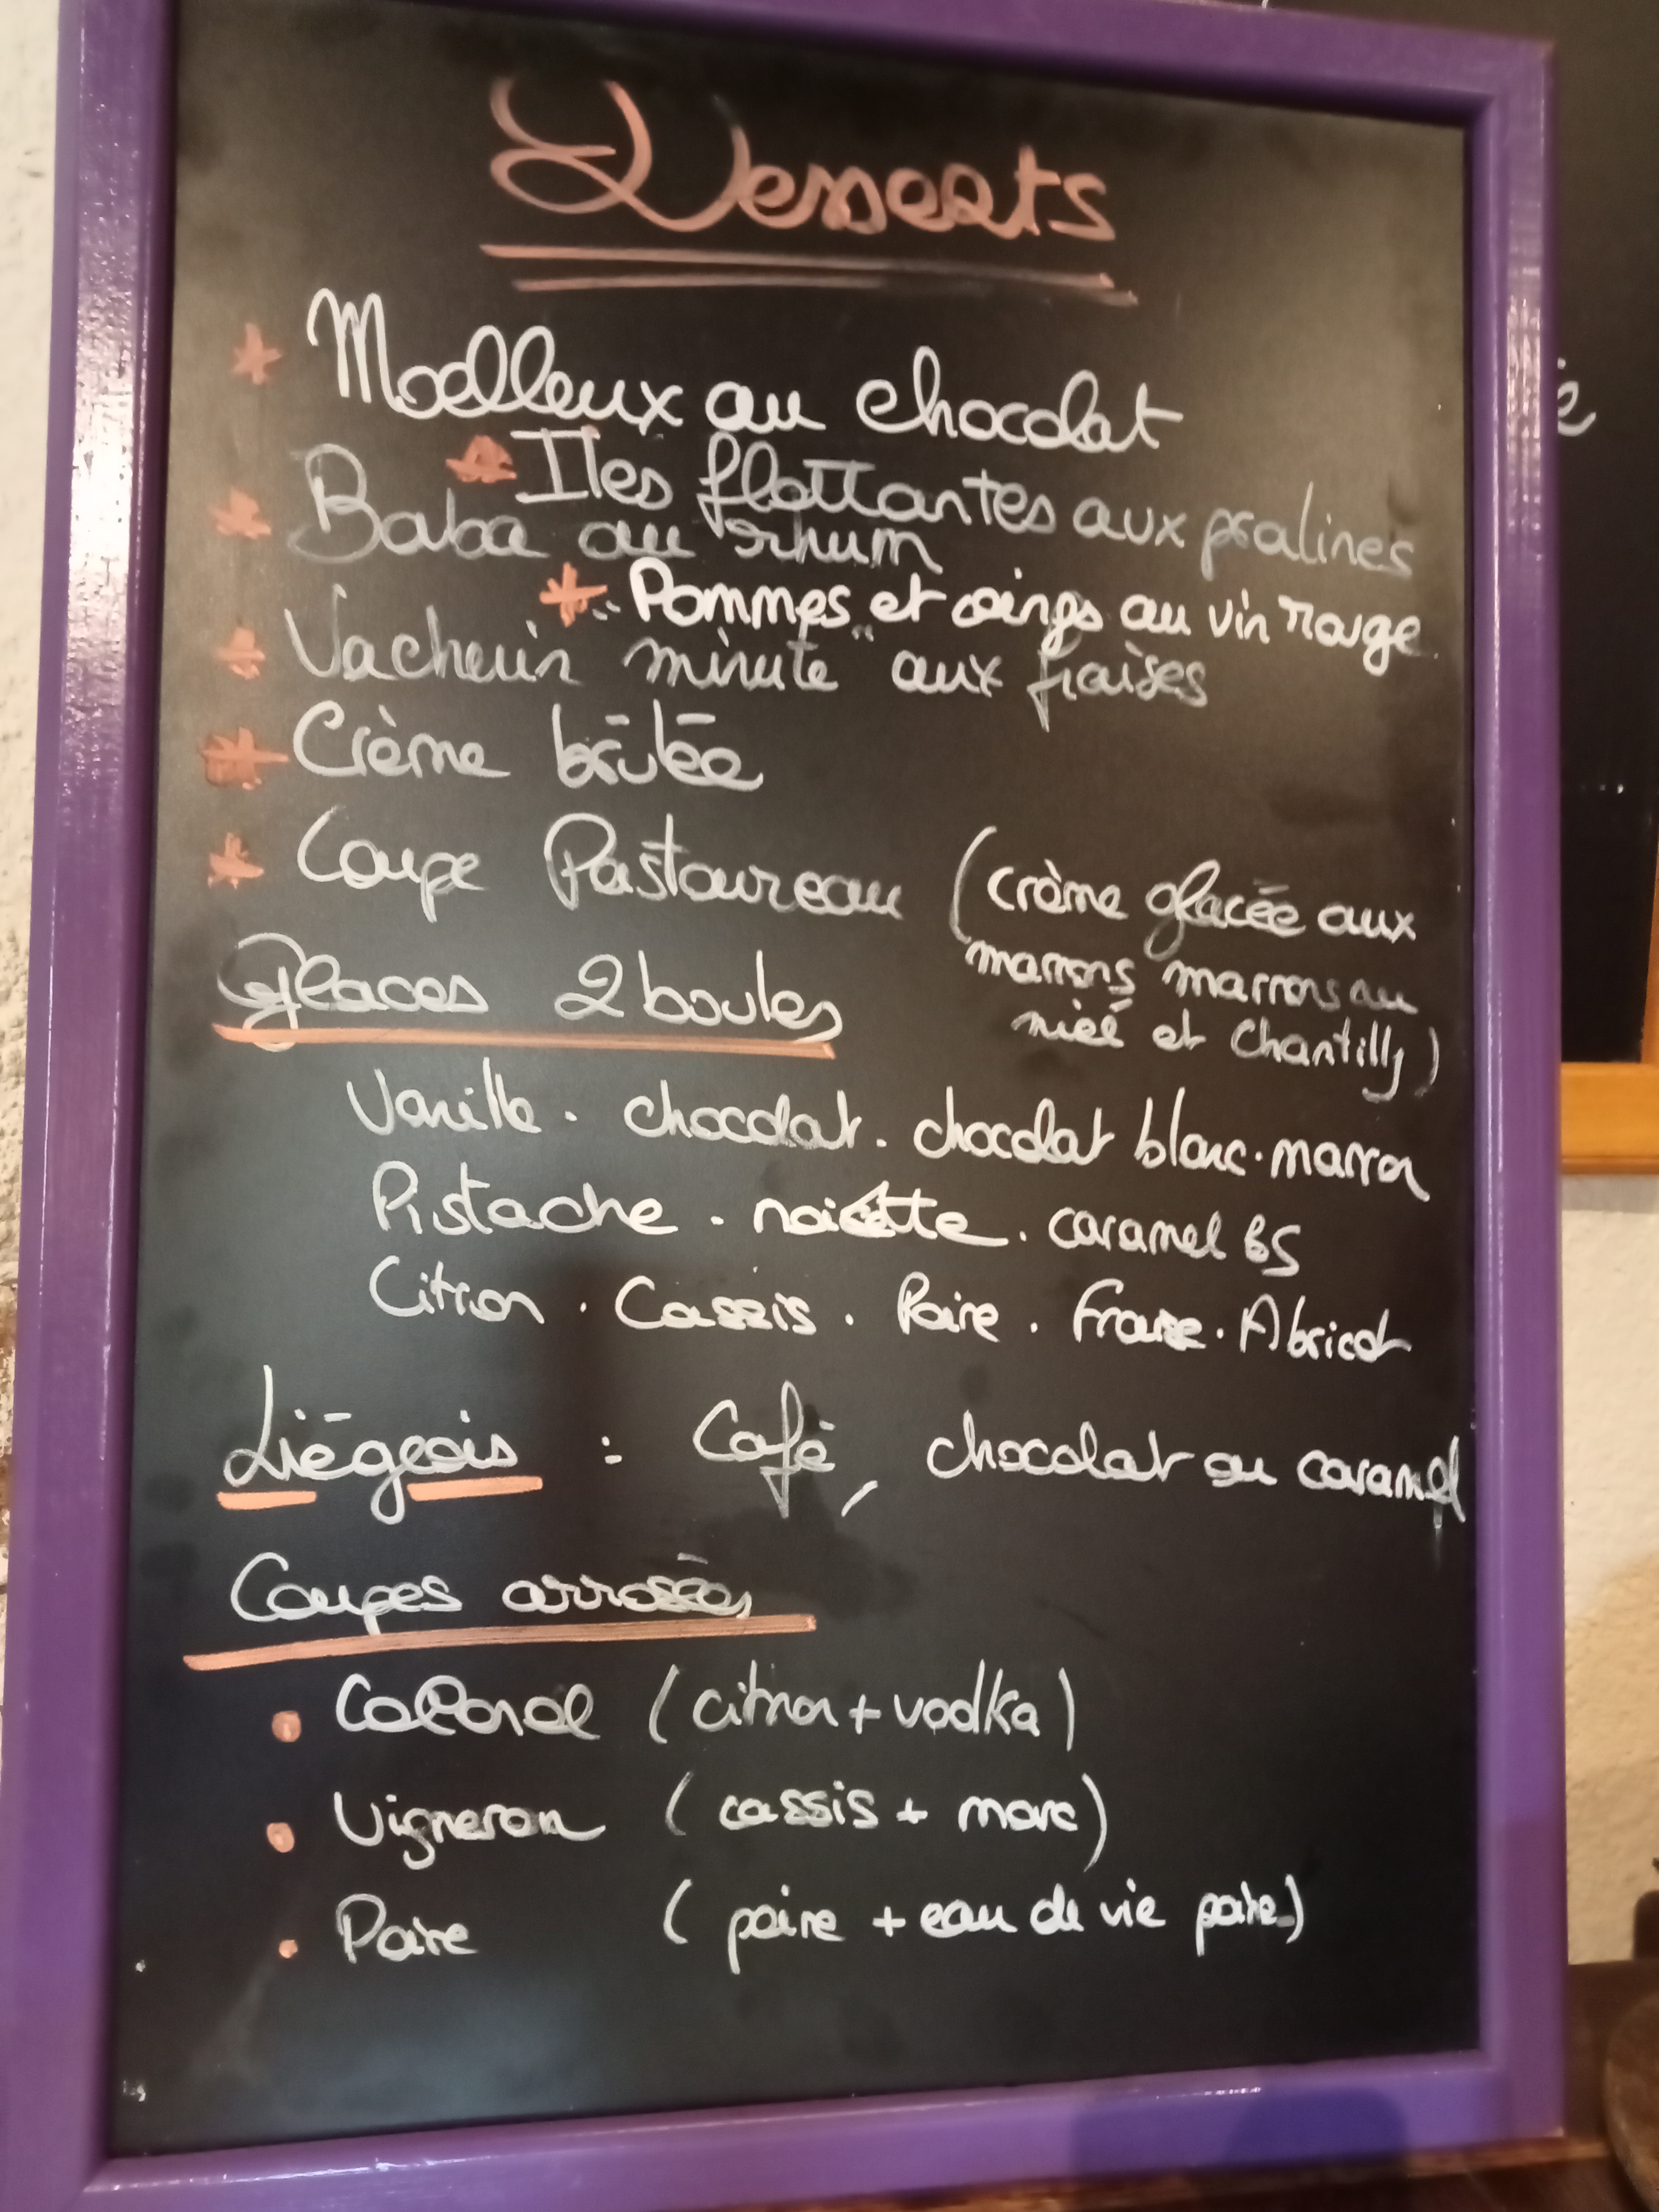 Desserts
* Moelleux au chocolat
* Iles flottantes aux pralines
* Baba au rhum
* Pommes et coings au vin rouge
* Vacherin "minute" aux fraises
* Crème brûlée
* Coupe Pastoureau (crème glacée aux
marrons marrons au
miel et chantilly)
Glaces 2 boules
Vanille . chocolat . chocolat blanc . marron
Pistache . noisette . caramel BS
Citron . Cassis . Poire . Fraise . Abricot
Liégeois : Café, chocolat ou caramel
Coupes arrosées
• Colonel (citron + vodka)
• Vigneron (cassis + marc)
• Poire (poire + eau de vie poire)